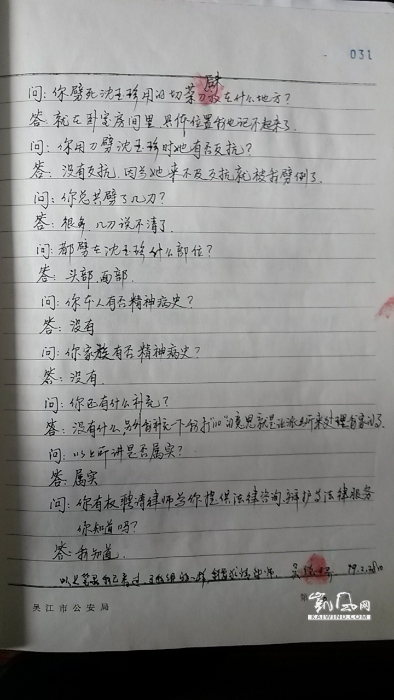 031
问：你劈死沈玉珍用的切菜刀放在什么地方？
答：就在卧室房间里，具体位置我也记不起来了。
问：你用刀劈沈玉珍时她有否反抗？
答：没有反抗，因为她来不及反抗就被我劈倒了。
问：你总共劈了几刀？
答：很多，几刀说不清了。
问：都劈在沈玉珍什么部位？
答：头部、面部。
问：你本人有否精神病史？
答：没有
问：你家族有否精神病史？
答：没有。
问：你还有什么补充？
答：没有什么，另外补充一下我打"110"的意思就是让派出所来处理
问：以上所讲是否属实？
答：属实
问：你有权聘请律师为你提供法律咨询、辩护等法律服务
你知道吗？
答：我知道。
以上笔录我已看过，和我说的一样
吴江市公安局
第
凯风网
KAIWIND.COM